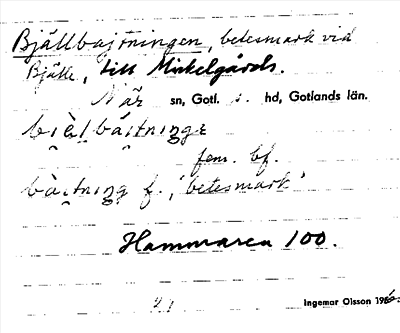 Bjällbajtningen, betesmark vid
Bjälle, till Mickelgårds.
När sn, Gotl. s. hd, Gotlands län.
fem. bf.
f. 'betesmark'
Hammaren 100.
Ingemar Olsson